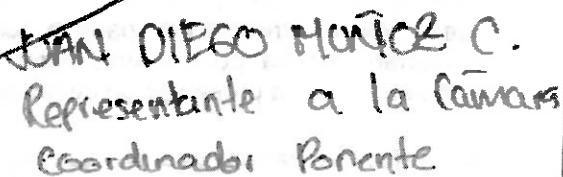 JUAN DIEGO MUÑOZ C.
Representante a la Cámara
Coordinador Ponente